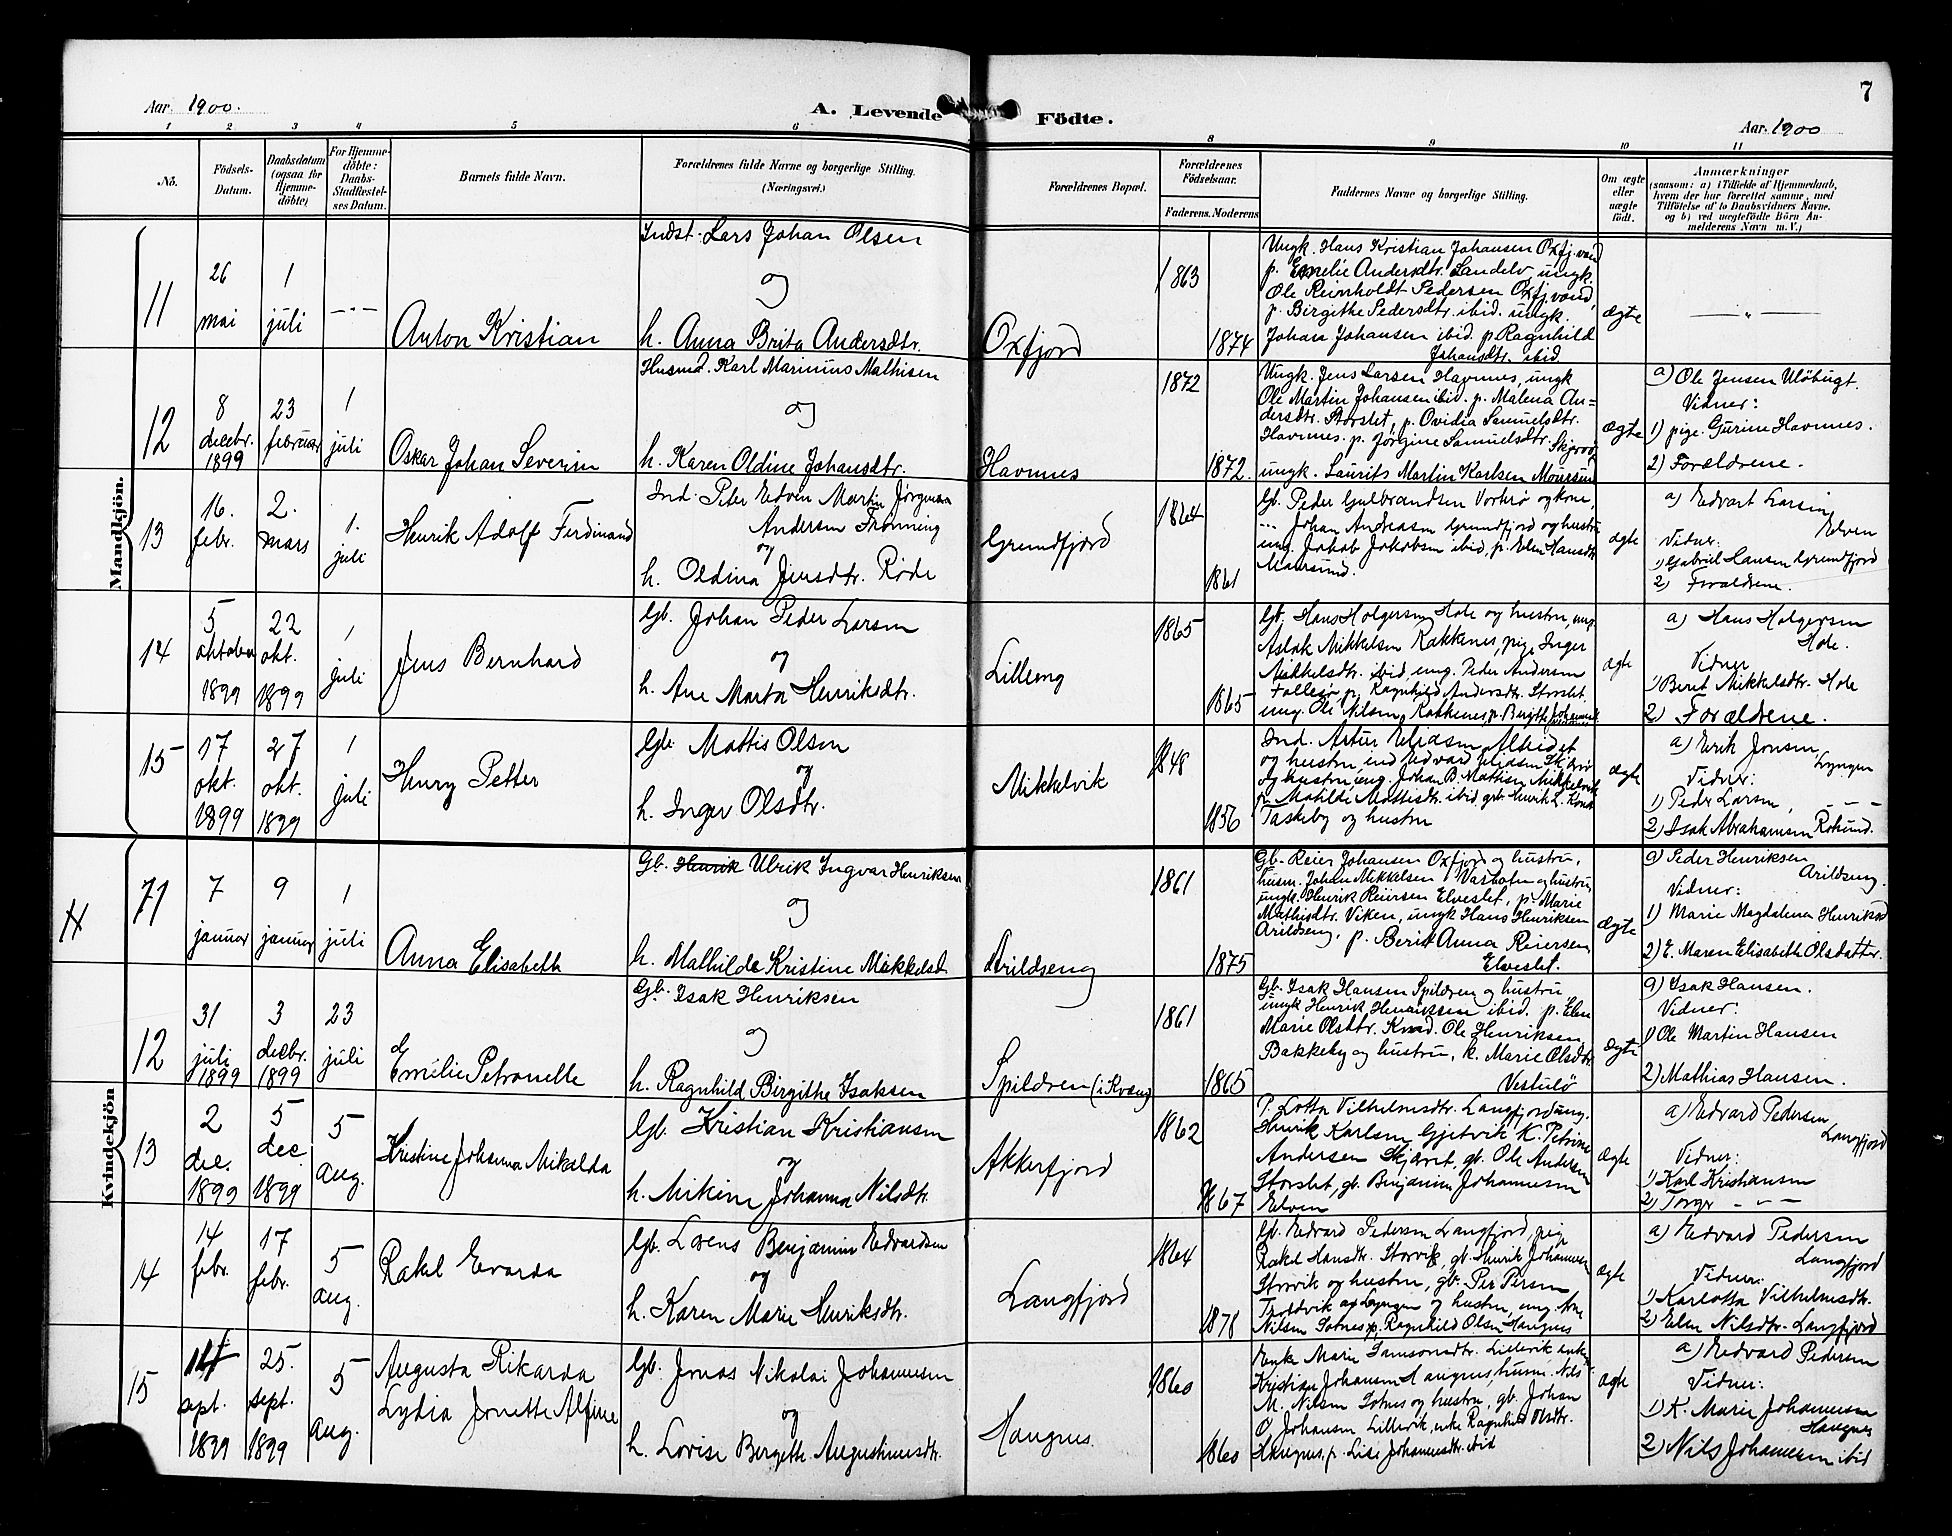 Aar. 1900.
A. Levende
Födte.
7
Aar. 1900
1 2 3 4 5 6 8 9 10 11
No.
Födsels-Datum.
Daabsdatum (ogsaa for Hjemme-döbte)
For Hjemme-döbte: Daabs-Stadfæstel-ses Datum.
Barnets fulde Navn.
Forældrenes fulde Navne og borgerlige Stilling. (Næringsvei.)
Forældrenes Bopæl.
Forældrenes Födselsaar.
Faderens. Moderens
Faddernes Navne og borgerlige Stilling.
Om ægte eller uægte födt.
Anmærkninger
(saasom: a) i Tilfælde af Hjemmedaab,
hvem der har forrettet samme, med
Tilföielse af to Daabsvidners Navne.
og b) ved uegtefödte Börn An-
melderens Navn m. V.)
Mandkjön.
11
26 mai
1 juli
Anton Kristian
Indst. Lars Johan Olsen
og
h. Anna Brita Andersdtr.
Oxfjord
1863
1874
Ungk. Hans Kristian Johansen Oxfj.vand
p. Emelie Andersdtr. Landelv, ungk.
Ole Reinholdt Pedersen Oxfj.vand,
p. Birgithe Pedersdtr. ibid. ungk.
Johan Johansen ibid. p Ragnhild
Johansdtr. ibid.
ægte
12
8 decbr. 1899
23 februar
1 juli
Oskar Johan Severin
Husmd. Karl Marinius Mathisen
og
h. Karen Oldine Johansdtr.
Havnnes
1872
1872.
Ungk. Jens Larsen Havnnes, ungk
Ole Martin Johansen ibid. p. Malena An=
dersdtr. Storslet, p. Ovidia Samuelsdtr.
Havnnes. p. Jørgine Samuelsdtr. Skjervø,
ungk. Laurits Martin Karlsen Maursund
ægte
a) Ole Jensen Uløbugt.
Vidner:
1) pige. Gurine Havnnes.
2) Forældrene.
13
16. febr.
2. mars
1. juli
Henrik Adolf Ferdinand
Ind. Peter Edvin Martin Jørgen
Andersen Frønning
og
h. Oldina Jensdtr. Røde
Grundfjord
1864
1861
Gb. Peder Gulbrandsen Vorterø og kone,
Johan Andreasen Grundfjord og hustru
ung. Jakob Jakobsen ibid, p. Elen Hansdtr.
Maursund.
ægte
a) Edvart Larsen
Elven
Vidner:
1) Gabriel Hansen Grundfjord
2) Forældrene.
14
5 oktober 1899
22 okt. 1899
1 juli
Jens Bernhard
Gb. Johan Peder Larsen
og
h. Ane Marta Henriksdtr.
Lilleng
1865
1865
Gb. Hans Holgersen Hole og hustru, ung.
Aslak Mikkelsen Rakkenes, pige Inger
Mikkelsdtr. ibid, ung. Peder Andersen
p. Ragnhild Andersdtr. Storslet,
ung. Ole Nilsen Rakkenes, p. Bergithe
ægte
a) Hans Holgersen
Hole.
Vidner
1) Berit Mikkelsdtr. Hole
2) Forældrene.
15
17 okt. 1899
27 okt. 1899
1 juli
Henry Petter
Gb. Mattis Olsen
og
h. Inger Olsdtr.
Mikkelvik
1848
1856
Ind. Artur Eliasen
og hustru ind Edvard Eliasen
og hustru, ung. Johan B. Mathisen Mikkelvik
p. Matilde Mattisdtr. ibid gb. Henrik L.
Taskeby og hustru
ægte
a) Erik Jonsen,
Lyngen
Vidner:
1) Peder Larsen,
2) Isak Abrahamsen Rotsund.
Kvindekjön
11
7 januar
9 januar
1 juli
Anna Elisabeth
Gb. Henrik Ulrik Ingvar Henriksen
og
h. Mathilde Kristine Mikkelsd
Arildseng
1861
1875
Gb. Reier Johansen Oxfjord og hustru,
husm. Johan Mikkelsen og hustru,
ungk. Henrik Reiersen Elveslet, p. Marie
Mathisdtr. Viken, ungk Hans Henriksen
Arildseng, p. Berit Anna Reiersen
Elveslet.
ægte
a) Peder Henriksen
Arildseng.
Vidner:
1) Marie Magdalena Henriksd
2) E. Maren Elisabeth Olsdatter.
12
31 juli 1899
3 decbr. 1899
23 juli
Emelie Petronelle
Gb. Isak Henriksen
og
h. Ragnhild Birgithe Isaksen
Spildren (i Kvæng)
1861
1865
Gb. Isak Hansen Spildren og hustru
ungk Henrik Henriksen ibid. p. Elen
Marie Olsdtr. Ole Henriksen
Bakkeby og hustru, k. Marie Olsdtr.
ægte
a) Isak Hansen.
Vidner:
1) Ole Martin Hansen
2) Mathias Hansen.
13
2 dec. 1899
5 dec 1899
5 aug.
Kristine Johanna Mikalda
Gb. Kristian Kristiansen
og
h. Mikine Johanna Nilsdtr.
Akkerfjord
1862
1867
P. Lotta Vilhelmsdtr. Langfjord ung.
Henrik Karlsen Gjetvik K. Petrine
Andersen gb. Ole Andersen
Storslet, gb. Benjamin Johannesen
Elven
ægte
a) Edvard Pedersen
Langfjord
Vidner:
1) Karl Kristiansen
2) Torger
14
14 febr.
17 febr.
5 aug.
Rakel Evarda
Gb. Lorens Benjamin Edvardsen
og
h. Karen Marie Henriksdtr.
Langfjord
1864
1878
Gb. Edvard Pedersen Langfjord, pige
Rakel Hansdtr. Storvik, gb. Henrik Johannesen
Storvik og hustru, gb. Per Persen
og hustru, ung. Arne
Nilsen Sotnes, p. Ragnhild Olsen Haugnes
ægte
a) Edvard Pedersen
Langfjord
Vidner:
1) Karlotta Vilhelmsdtr.
2) Elen Nilsdtr. Langfjord
15
14 sept. 1899
25. sept. 1899
5 aug.
Augusta Rikarda
Lydia Jonette Alfine
Gb. Jonas Nikolai Johannesen
og
h. Lovise Bergette Augustinusdtr.
Haugnes.
1860
1860
Enke Marie Samsonsdtr. Lillevik
Kristian Johansen Haugnes, husm. Nils
M. Nilsen Sotnes og hustru, gb. Johan
O. Johansen Lillevik, enke Ragnhild Olsdtr.
Haugnes, p. Lise Johannesdtr. ibid
ægte
a) Edvard Pedersen
Vidner:
1) K. Marie Johannesen
Haugnes
2) Nils Johannesen ibid